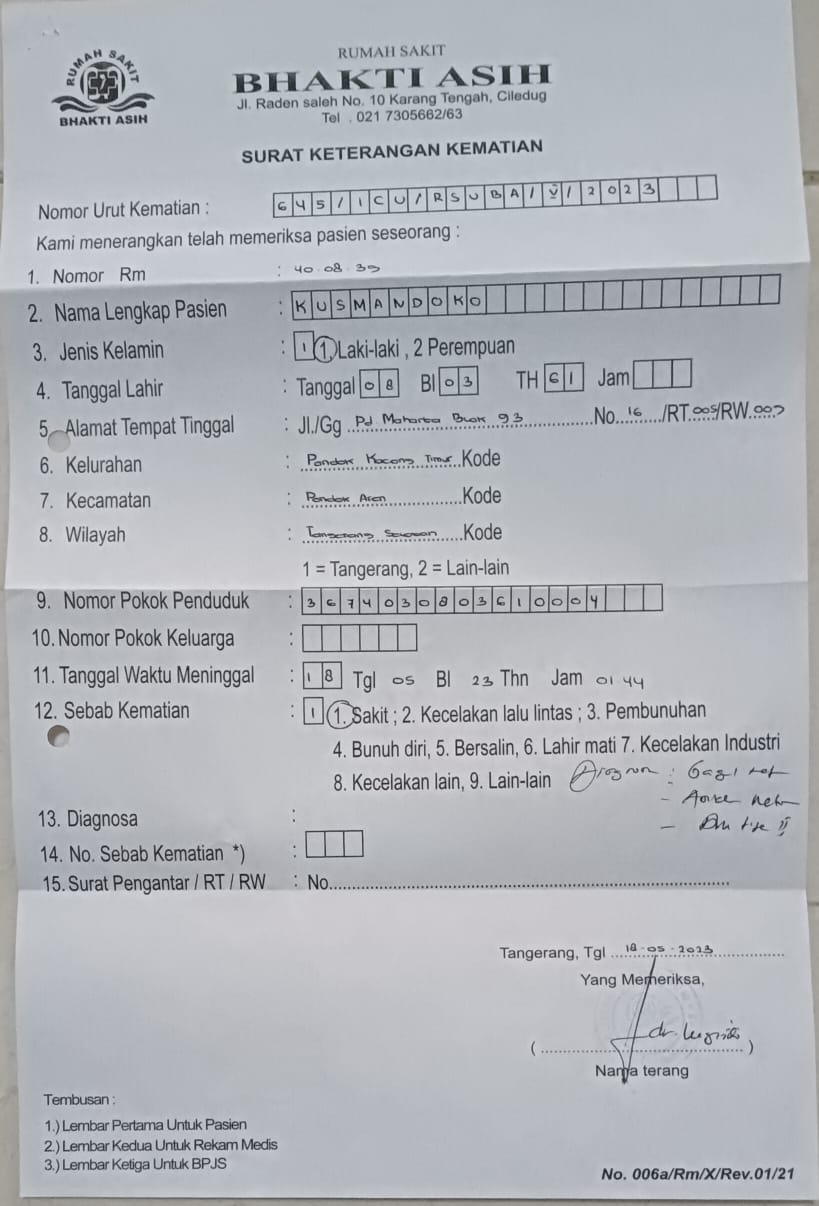 RUMAH SAKIT
BHAKTI ASIH
RUMAH SAKIT
BHAKTI ASIH
Jl. Raden saleh No. 10 Karang Tengah, Ciledug
Tel . 021 7305662/63
SURAT KETERANGAN KEMATIAN
Nomor Urut Kematian : 645/ICU/RSUBA/V/2023
Kami menerangkan telah memeriksa pasien seseorang :
1. Nomor Rm : 40.08.39
2. Nama Lengkap Pasien : KUSMANDOKO
3. Jenis Kelamin : 1 1. Laki-laki , 2 Perempuan
4. Tanggal Lahir : Tanggal 08 Bl 03 TH 61 Jam
5. Alamat Tempat Tinggal : Jl./Gg Pd Maharta Blok 93 No. 16 /RT. 005 /RW. 007
6. Kelurahan : Pondok Kacang Timur Kode
7. Kecamatan : Pondok Aren Kode
8. Wilayah : Tangerang Selatan Kode
1 = Tangerang, 2 = Lain-lain
9. Nomor Pokok Penduduk : 3674030803610004
10. Nomor Pokok Keluarga :
11. Tanggal Waktu Meninggal : 18 Tgl 05 Bl 23 Thn Jam 01 44
12. Sebab Kematian : 1 1. Sakit ; 2. Kecelakan lalu lintas ; 3. Pembunuhan
4. Bunuh diri, 5. Bersalin, 6. Lahir mati 7. Kecelakan Industri
8. Kecelakan lain, 9. Lain-lain : Gagal
-
13. Diagnosa :
- Dm tipe II
14. No. Sebab Kematian *) :
15. Surat Pengantar / RT / RW : No.
Tangerang, Tgl 18-05-2023
Yang Memeriksa,
( dr. )
Nama terang
Tembusan :
1.) Lembar Pertama Untuk Pasien
2.) Lembar Kedua Untuk Rekam Medis
3.) Lembar Ketiga Untuk BPJS
No. 006a/Rm/X/Rev.01/21